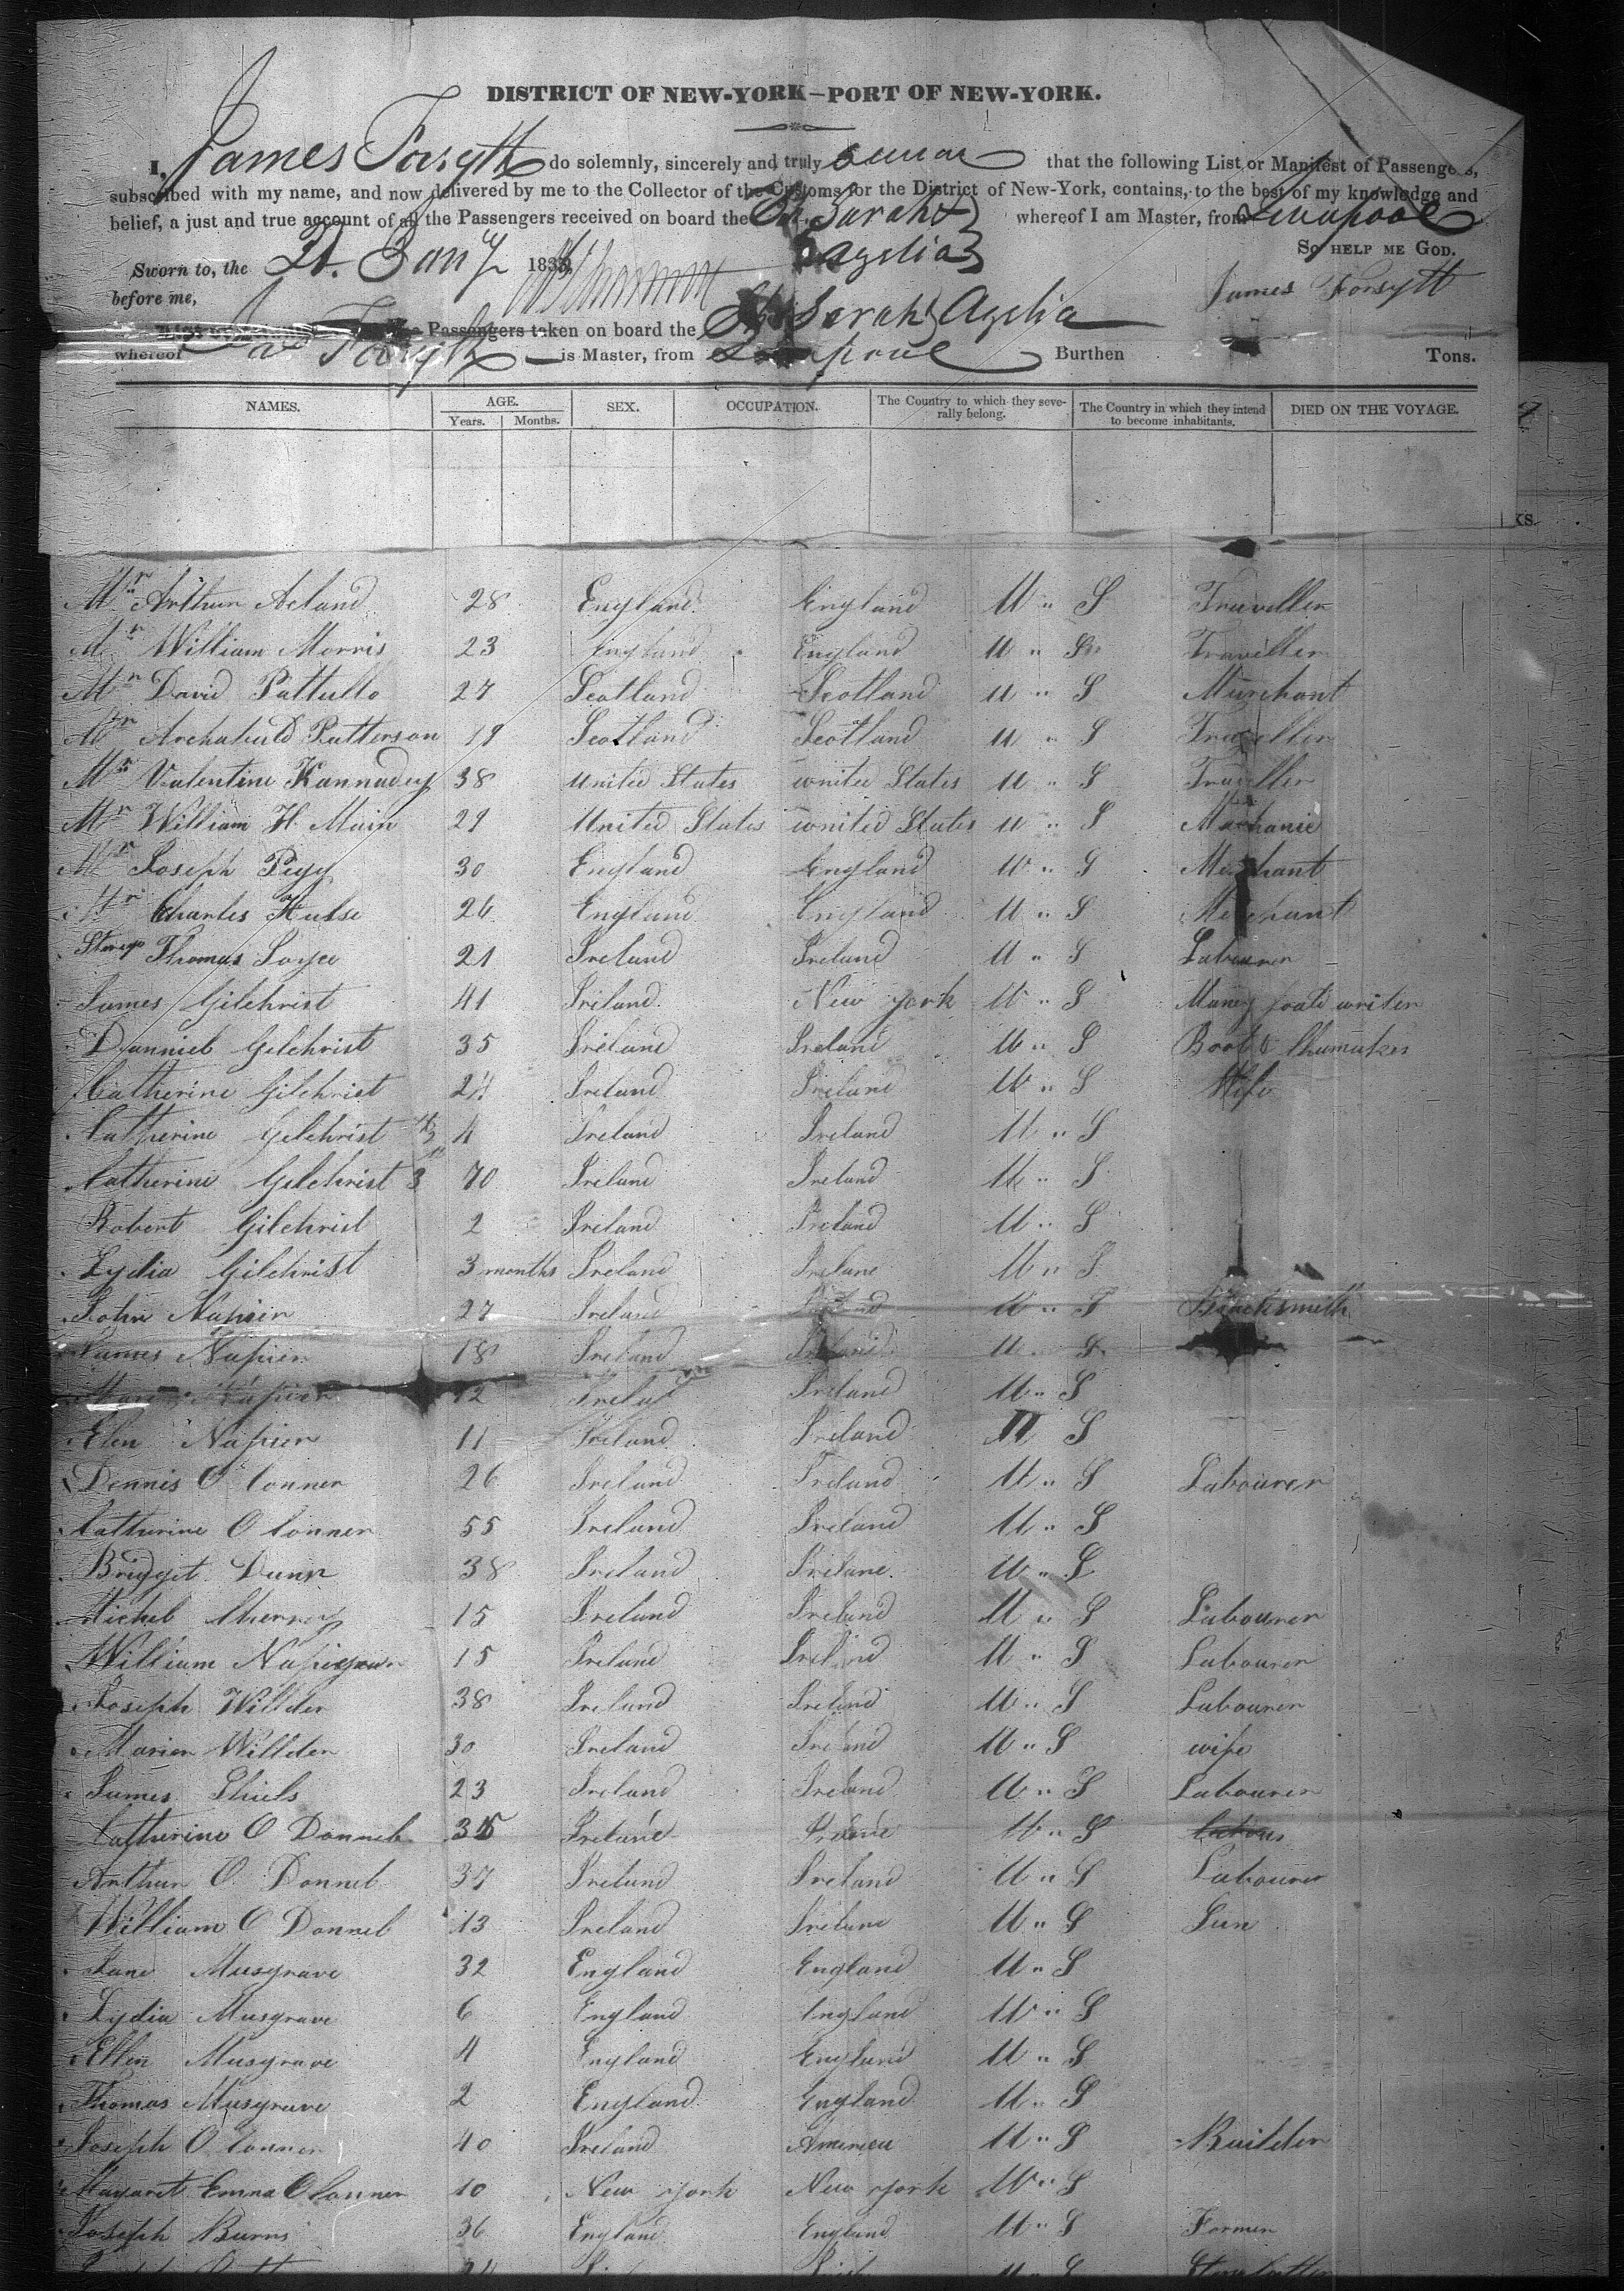 DISTRICT OF NEW-YORK—PORT OF NEW-YORK.
I, James Forsyth do solemnly, sincerely and truly swear that the following List or Manifest of Passengers,
subscribed with my name, and now delivered by me to the Collector of the Customs for the District of New-York, contains, to the best of my knowledge and
belief, a just and true account of all the Passengers received on board the Sh. Sarah & Agelia whereof I am Master, from Liverpool
SO HELP ME GOD.
Sworn to, the 21. Jany 183
before me,
James Forsyth
Passengers taken on board the Sh Sarah & Agelia
whereof Jas Forsyth is Master, from Liverpool Burthen Tons.
NAMES. AGE. SEX. OCCUPATION. The Country to which they severally belong. The Country in which they intend to become inhabitants. DIED ON THE VOYAGE.
Years. Months.
Mr Arthur Acland 28 England England U " S Traveller
Mr William Morris 23 England England U " S Traveller
Mr David Pattullo 27 Scotland Scotland U " S Murchant
Mr Archabuld Patterson 19 Scotland Scotland U " S Traveller
Mr Valentine Kannadey 38 United States United States U " S Traveller
Mr William H. Main 29 United States United States U " S Machanic
Mr Joseph Pegg 30 England England U " S Merchant
Mr Charles Hulse 26 England England U " S Merchant
Thomas Joyce 21 Ireland Ireland U " S Labourer
James Gilchrist 41 Ireland New york U " S writer
Danniel Gilchrist 35 Ireland Ireland U " S Boot & Shumaker
Catherine Gilchrist 24 Ireland Ireland U " S Wife
Catherine Gilchrist 4 Ireland Ireland U " S
Catherine Gilchrist 3 70 Ireland Ireland U " S
Robert Gilchrist 2 Ireland Ireland U " S
Lydia Gilchrist 3 months Ireland Ireland U " S
John Napier 27 Ireland Ireland U " S Blacksmith
James Napier 18 Ireland Ireland U " S
Napier 12 Ireland Ireland U " S
Elen Napier 11 Ireland Ireland U S
Dennis O Conner 26 Ireland Ireland U " S Labourer
Catherine O Conner 55 Ireland Ireland U " S
Bridget Dunn 38 Ireland Ireland U " S
Michel Cherrey 15 Ireland Ireland U " S Labourer
William 15 Ireland Ireland U " S Labourer
Joseph Willder 38 Ireland Ireland U " S Labourer
Marier Willder 30 Ireland Ireland U " S wife
James Shiels 23 Ireland Ireland U " S Labourer
Catherine O Donnel 35 Ireland Ireland U " S
Arthur O Donnel 37 Ireland Ireland U " S Labourer
William O Donnel 13 Ireland Ireland U " S Sun
Jane Musgrave 32 England England U " S
Lydia Musgrave 6 England England U " S
Ellen Musgrave 4 England England U " S
Thomas Musgrave 2 England England U " S
Joseph O Conner 40 Ireland America U " S Builder
Magaret Emma O Conner 10 New york New york U " S
Joseph Burns 36 England England U " S Former